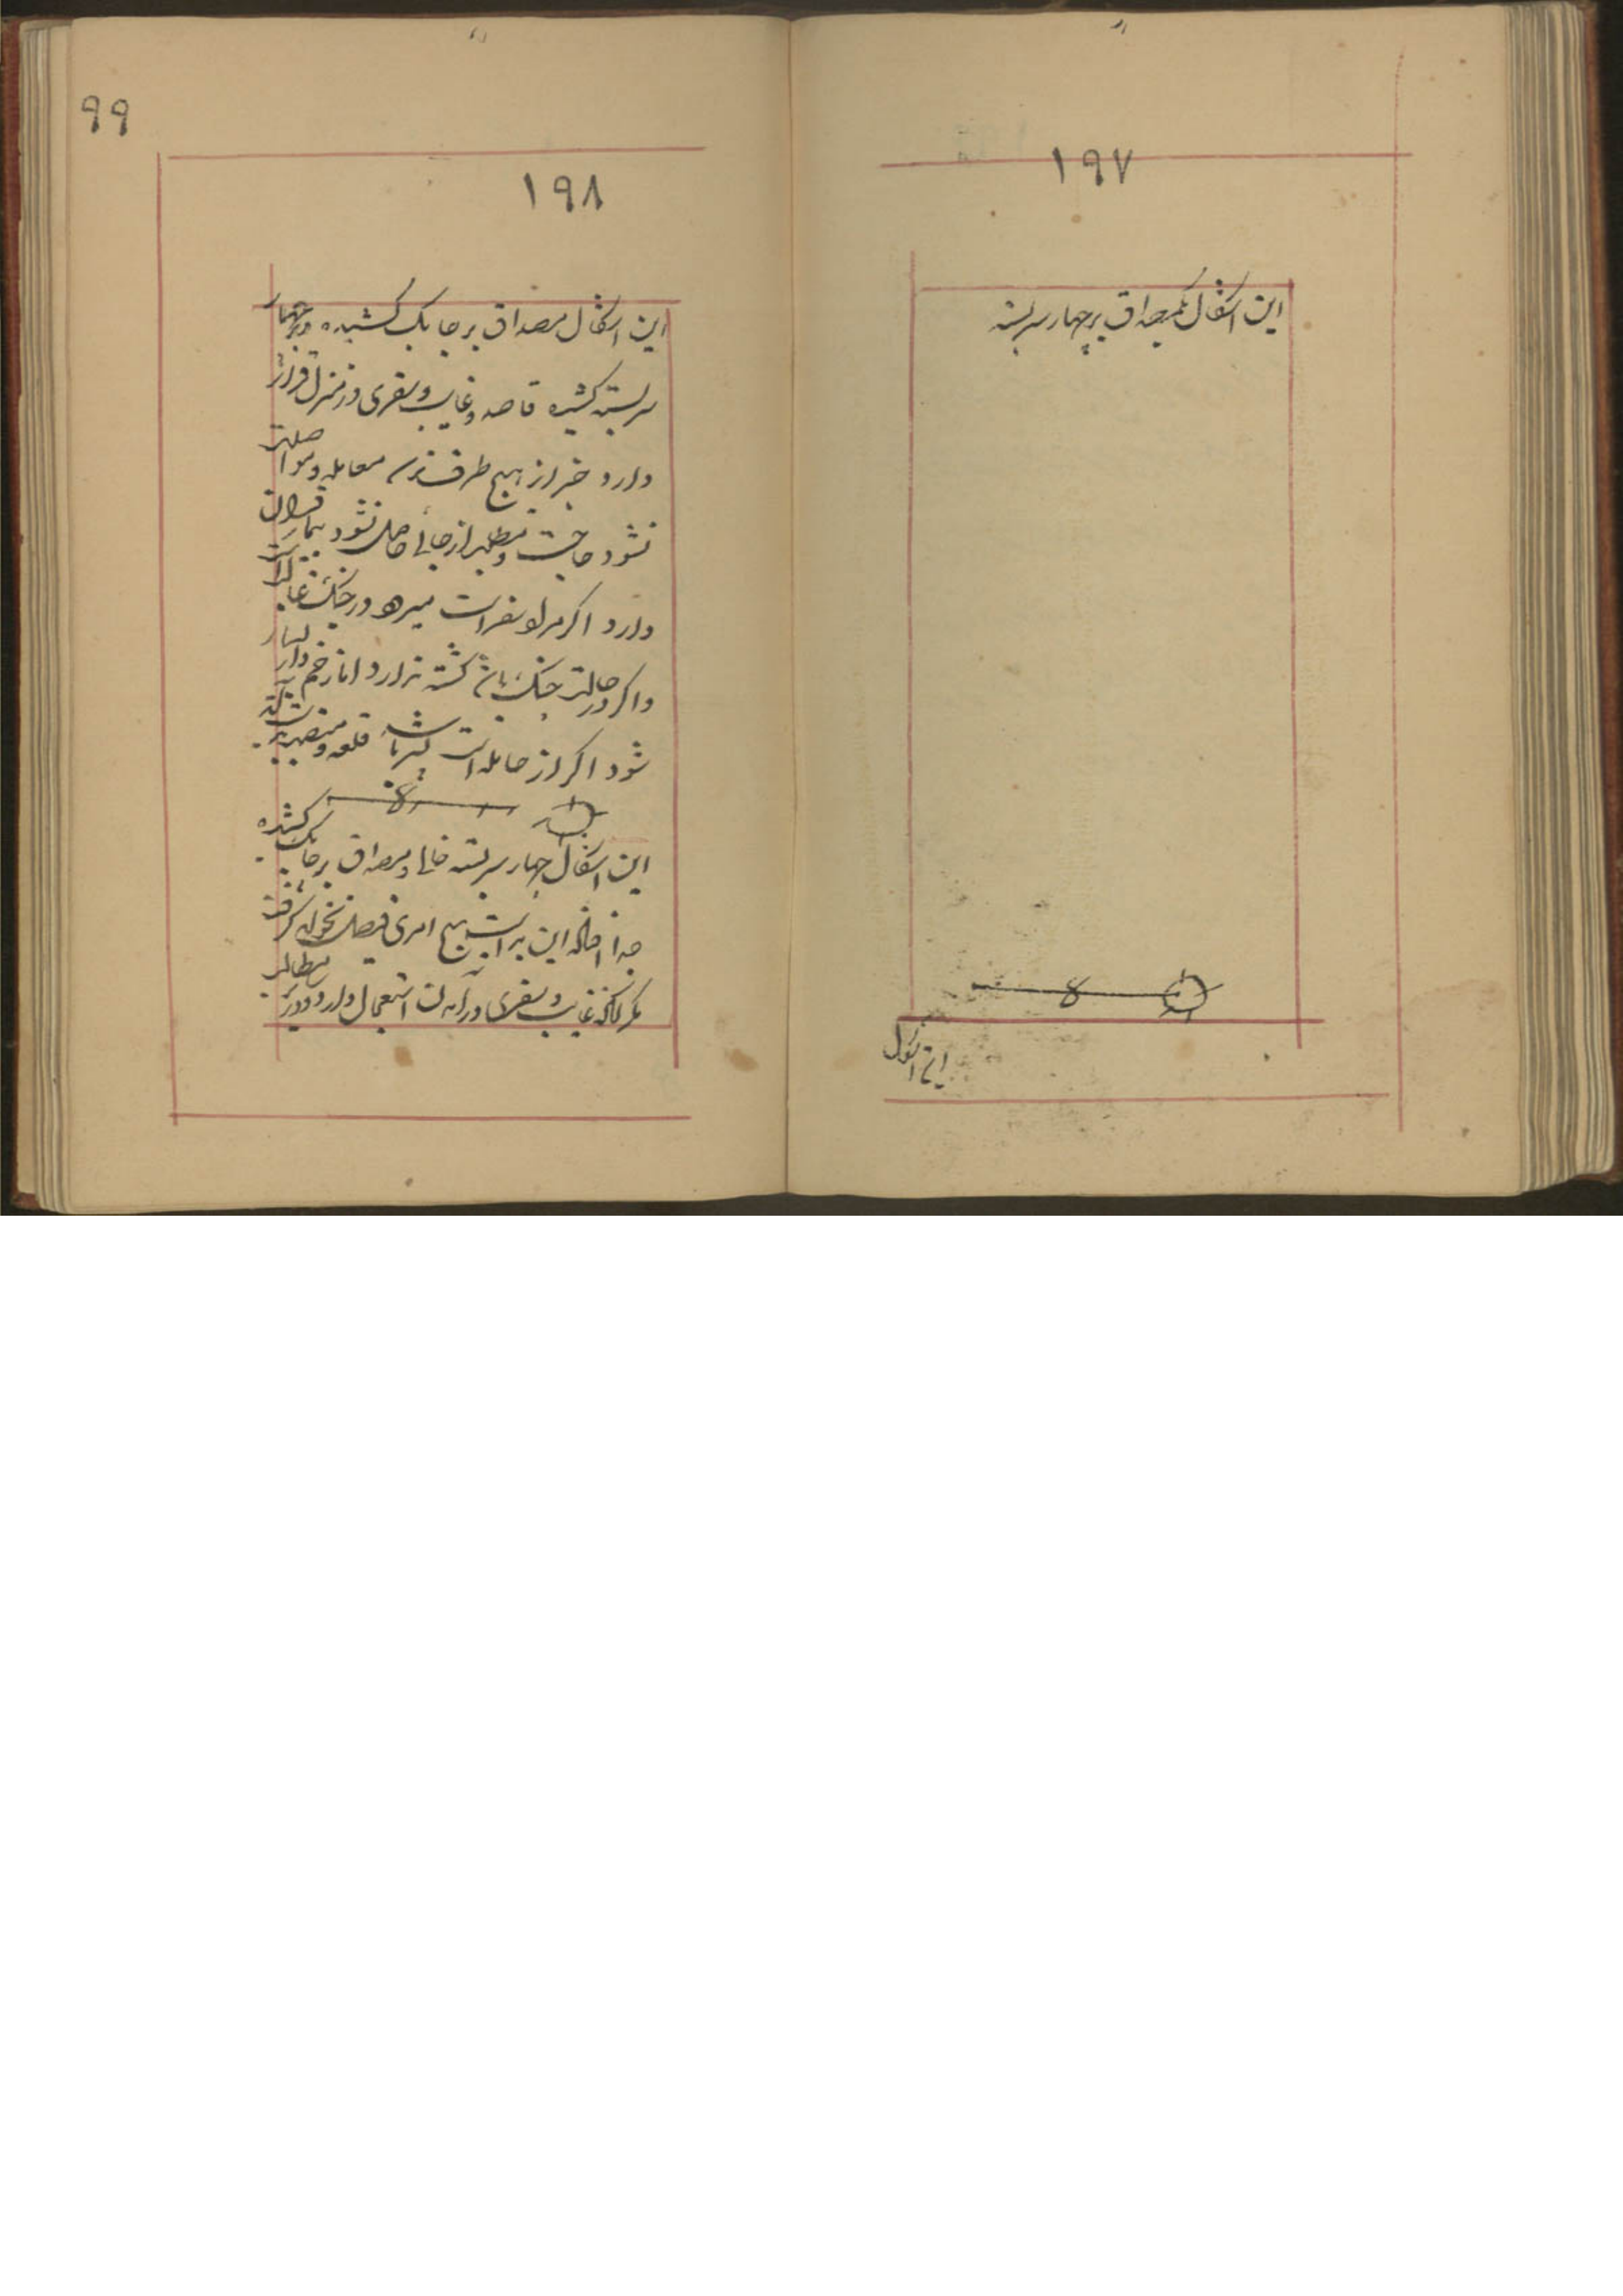 ۱۹۷
این اشکال بمصداق بر چهار سر بسته
این اشکال
۹۹
۱۹۸
این اشکال مصداق بر جا یک کشیده و بر چهار
سر بسته کشیده قاصد و غایب و سفری در منزل قرار
دارد خبر از هیچ طرف نرسد معامله و مواصلت
نشود حاجت و مطلب از جائی حاصل نشود بیمار
دارد اگر مراد سفر است میرود در جنگ غالب است
و اگر در حالت جنگ باشد کشته ندارد اما زخم دار بسیار
شود اگر از حامله است پسر باشد قلعه و منصب
این اشکال چهار سر بسته خالی و مصداق بر جا یک کشیده
جدا خانه این برات هیچ امری فیصل نخواهد گرفت
مگر آنکه غایب و سفری در آمدن استعمال دارد و دیگر مطالب